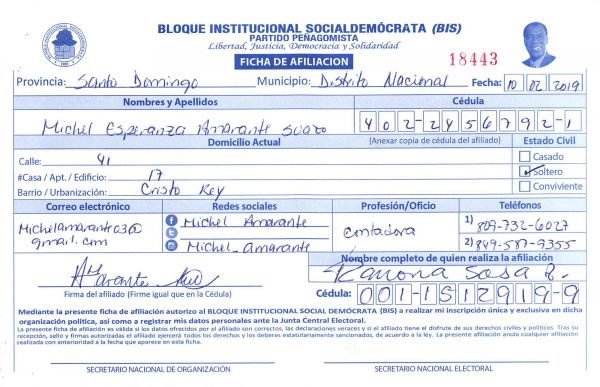 BLOQUE INSTITUCIONAL SOCIALDEMÓCRATA (BIS)
PARTIDO PEÑAGOMISTA
Libertad, Justicia, Democracia y Solidaridad
FICHA DE AFILIACION
18443
Provincia: Santo Domingo Municipio: Distrito Nacional Fecha: 10 02 2019
Nombres y Apellidos Cédula
Michel Esperanza Amarante Suazo 402-2456792-1
Domicilio Actual (Anexar copia de cédula del afiliado) Estado Civil
Calle: 41 Casado
#Casa / Apt. / Edificio: 17 Soltero
Barrio / Urbanización: Cristo Rey Conviviente
Correo electrónico Redes sociales Profesión/Oficio Teléfonos
Michelamarante030@ Michel Amarante contadora 1) 809-732-6027
gmail.com Michel_amarante 2) 849-587-9355
Nombre completo de quien realiza la afiliación
Amarante Ramona Sosa R.
Firma del afiliado (Firme igual que en la Cédula) Cédula: 001-1512919-9
Mediante la presente ficha de afiliación autorizo al BLOQUE INSTITUCIONAL SOCIAL DEMÓCRATA (BIS) a realizar mi inscripción única y exclusiva en dicha
organización política, así como a registrar mis datos personales ante la Junta Central Electoral.
La presente ficha de afiliación es válida si los datos ofrecidos por el afiliado son correctos, las declaraciones veraces y si el afiliado tiene el disfrute de sus derechos civiles y políticos. Tras su
recepción, sello y firmas autorizadas el afiliado ejercerá todos los derechos y los deberes estatutariamente sancionados, de acuerdo a la ley. La presente afiliación anula cualquier afiliación
realizada con anterioridad a la fecha que aparece en esta ficha.
SECRETARIO NACIONAL DE ORGANIZACIÓN SECRETARIO NACIONAL ELECTORAL